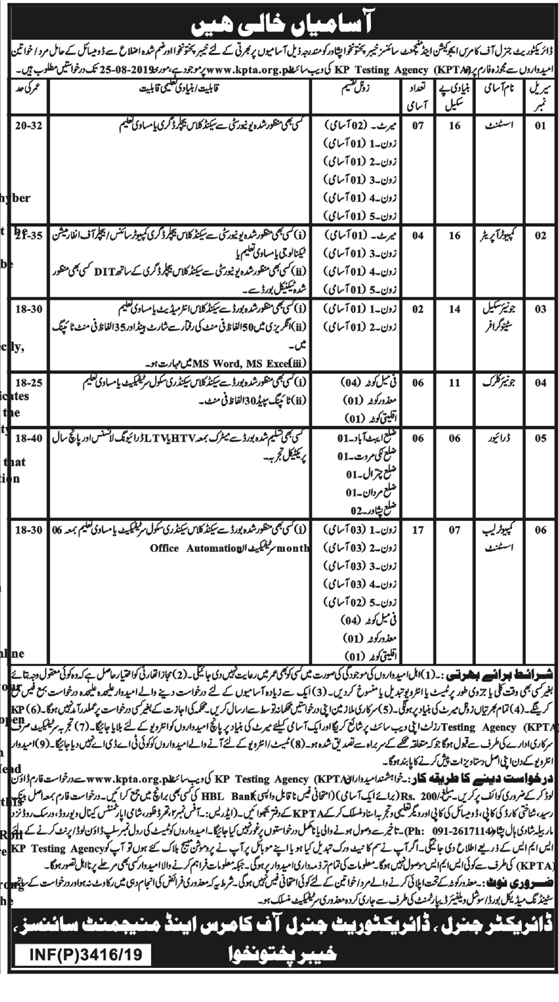 آسامیاں خالی ہیں
ڈائریکٹوریٹ جنرل آف کامرس ایجوکیشن اینڈ منیجمنٹ سائنسز خیبر پختونخوا پشاور کو مندرجہ ذیل آسامیوں پر بھرتی کے لئے خیبر پختونخوا اور ضم شدہ اضلاع سے ڈومیسائل کے حامل مرد/خواتین
امیدواروں سے مجوزہ فارم پر KP Testing Agency (KPTA) کی ویب سائٹ www.kpta.org.pk پر موجود ہے، مورخہ 25-08-2019 تک درخواستیں مطلوب ہیں۔
سیریل نمبر | نام آسامی | بنیادی پے سکیل | تعداد آسامی | زونل تقسیم | قابلیت/بنیادی تعلیمی قابلیت | عمر کی حد
01 | اسسٹنٹ | 16 | 07 | میرٹ۔ (02 آسامی) | کسی بھی منظور شدہ یونیورسٹی سے سیکنڈ کلاس بیچلر ڈگری یا مساوی تعلیم | 20-32
زون۔1 (01 آسامی)
زون۔2 (01 آسامی)
زون۔3 (01 آسامی)
زون۔4 (01 آسامی)
زون۔5 (01 آسامی)
02 | کمپیوٹر آپریٹر | 16 | 04 | میرٹ۔ (01 آسامی) | (i) کسی بھی منظور شدہ یونیورسٹی سے سیکنڈ کلاس بیچلر ڈگری کمپیوٹر سائنس/بیچلر آف انفارمیشن | 21-35
زون۔3 (01 آسامی) | ٹیکنالوجی یا مساوی تعلیم یا
زون۔4 (01 آسامی) | (ii) کسی بھی منظور شدہ یونیورسٹی سے سیکنڈ کلاس بیچلر ڈگری کے ساتھ DIT کسی بھی منظور
زون۔5 (01 آسامی) | شدہ ٹیکنیکل بورڈ سے۔
03 | جونیئر سکیل سٹینوگرافر | 14 | 02 | زون۔1 (01 آسامی) | (i) کسی بھی منظور شدہ بورڈ سے سیکنڈ کلاس انٹرمیڈیٹ یا مساوی تعلیم | 18-30
زون۔2 (01 آسامی) | (ii) انگریزی میں 50 الفاظ فی منٹ کی رفتار سے شارٹ ہینڈ اور 35 الفاظ فی منٹ ٹائپنگ
میں۔
(iii) MS Word, MS Excel میں مہارت ہو۔
04 | جونیئر کلرک | 11 | 06 | فی میل کوٹہ (04) | (i) کسی بھی منظور شدہ بورڈ سے سیکنڈ کلاس سیکنڈری سکول سرٹیفکیٹ یا مساوی تعلیم | 18-25
معذور کوٹہ (01) | (ii) ٹائپنگ سپیڈ 30 الفاظ فی منٹ۔
اقلیتی کوٹہ (01)
05 | ڈرائیور | 06 | 06 | ضلع ایبٹ آباد۔01 | کسی بھی تسلیم شدہ بورڈ سے میٹرک بمعہ HTV یا LTV ڈرائیونگ لائسنس اور پانچ سال | 18-40
ضلع لکی مروت۔01 | پریکٹیکل تجربہ۔
ضلع چترال۔01
ضلع مردان۔01
ضلع پشاور۔02
06 | کمپیوٹر لیب اسسٹنٹ | 07 | 17 | زون۔1 (03 آسامی) | (i) کسی بھی منظور شدہ بورڈ سے سیکنڈ کلاس سیکنڈری سکول سرٹیفکیٹ یا مساوی تعلیم بمعہ 06 | 18-30
زون۔2 (03 آسامی) | month سرٹیفکیٹ ان Office Automation
زون۔3 (03 آسامی)
زون۔4 (03 آسامی)
زون۔5 (02 آسامی)
فی میل کوٹہ (04)
معذور کوٹہ (01)
اقلیتی کوٹہ (01)
شرائط برائے بھرتی :۔ (1) اہل امیدواروں کی موجودگی کی صورت میں کسی کو بھی عمر میں رعایت نہیں دی جائیگی۔ (2) مجاز اتھارٹی کو اختیار حاصل ہے کہ وہ کوئی معقول وجہ بتائے
بغیر کسی بھی وقت کلی یا جزوی طور پر ٹیسٹ یا انٹرویو تبدیل یا منسوخ کر دیں۔ (3) ایک سے زیادہ آسامیوں کے لئے درخواست دینے والے امیدوار علیحدہ علیحدہ درخواست بمع فیس جمع
کرینگے۔ (4) تمام بھرتیاں زونل میرٹ کی بنیاد پر ہوگی۔ (5) سرکاری ملازمین اپنی درخواستیں محکمانہ توسط سے ارسال کریں۔ محکمہ کی اجازت کے بغیر کسی درخواست پر عملدرآمد نہیں ہوگا۔ (6) KP
Testing Agency (KPTA) رزلٹ اپنی ویب سائٹ پر شائع کریگا اور ایک آسامی کیلئے میرٹ کی بنیاد پر پانچ امیدواروں کو انٹرویو کے لئے بلایا جائیگا۔ (7) تجربہ سرٹیفکیٹ صرف
سرکاری ادارے کی طرف سے قبول ہوگا جو کہ متعلقہ محکمے کے سربراہ سے تصدیق شدہ ہو۔ (8) ٹیسٹ/انٹرویو کے لئے آنے والے امیدواروں کو کوئی ٹی اے ڈی اے نہیں دیا جائیگا۔ (9) امیدوار
انٹرویو کے دن اپنی اصل دستاویزات پیش کرنے کا پابند ہوگا۔
درخواست دینے کا طریقہ کار:۔ خواہشمند امیدوار KP Testing Agency (KPTA) کی ویب سائٹ www.kpta.org.pk سے درخواست فارم ڈاؤن
لوڈ کر کے ضروری کوائف پر کریں۔ مبلغ Rs. 200/ (برائے ایک آسامی) (امتحانی فیس ناقابل واپسی) HBL Bank کی کسی بھی برانچ میں جمع کرائیں۔ درخواست فارم بمعہ اصل بینک
رسید، شناختی کارڈ کی کاپی، ڈومیسائل کی کاپی اور دیگر تعلیمی و تجربہ اسناد منسلک کر کے KPTA کے دفتر بھجوائیں۔
ضروری نوٹ :۔ معذور کوٹہ کے تحت اپلائی کرنے والے مرد/خواتین کے لئے کوئی امتحانی فیس نہیں ہوگی۔
ڈائریکٹر جنرل، ڈائریکٹوریٹ جنرل آف کامرس اینڈ منیجمنٹ سائنسز،
خیبر پختونخوا
INF(P)3416/19